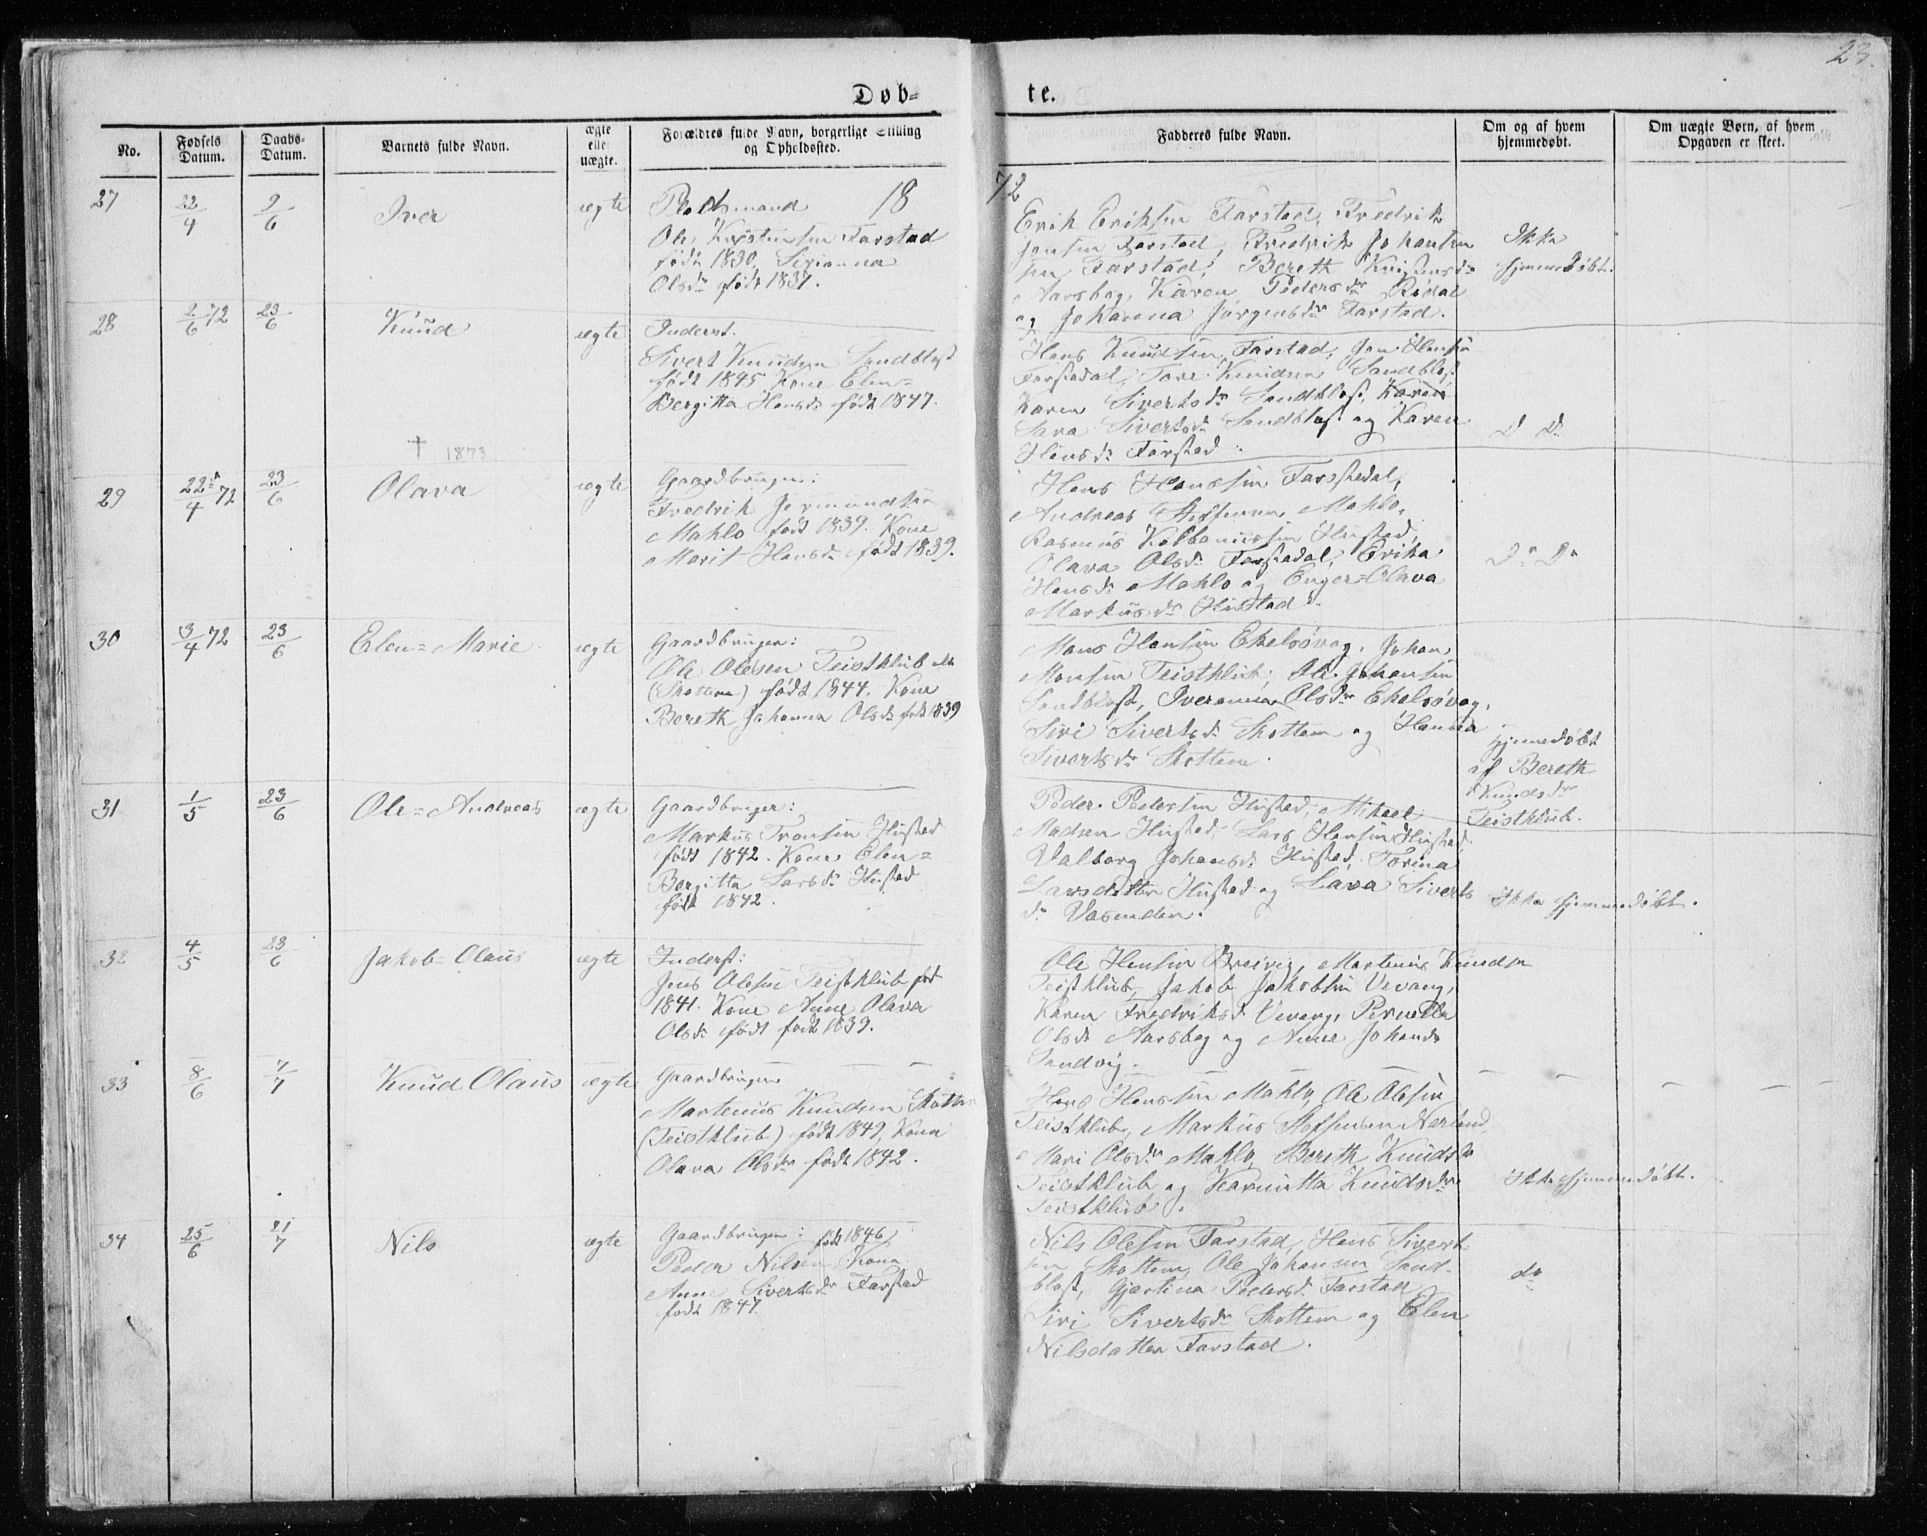 23.
Døb=
te.
No.
Fødsels Datum.
Daabs- Datum.
Barnets fulde Navn.
ægte eller uægte.
Forældres fulde Navn, borgerlige Stilling og Opholdssted.
Fadderes fulde Navn.
Om og af hvem hjemmedøbt.
Om uægte Børn, af hvem Opgaven er skeet.
18
72
27
22/4
9/6
Iver
ægte
Pladsmand
Ole Kristensen Farstad
født 1830, Sirianna
Olsdr født 1837.
Erik Eriksen Farstad, Fredrik
Jensen Farstad, Fredrik Johansen
sen Farstad, Bereth Kristensdr
Aarsbog, Karen Pedersdr Rødal
og Johanna Jørgensdr Farstad.
Ikke
hjemmedøbt.
28
2/6 72
23/6
Knud
† 1873
ægte
Inderst.
Sivert Knudsen Sandblost
født 1845 Kone Elen=
Bergitta Hansdr født 1847.
Hans Knudsen Farstad, Jon Hansen
Farstadal, Tore Knudsen Sandblost,
Karen Sivertsdr Sandblost, Karen
Sara Sivertsdr Sandblost og Karen
Hansdr Farstad.
D D.
29
22/4 72
23/6
Olava
ægte
Gaardbruger:
Fredrik Jermundsen
Mahlo født 1839. Kone
Marit Hansdr født 1839.
Hans Hansen Farstadal,
Andreas Steffensen Mahlo,
Rasmus Kolbeniussen Hustad,
Olava Olsdr Farstadal, Erika
Hansdr Mahlo og Enger=Olava
Markusdr Hustad.
Do Do
30
3/4 72
23/6
Elen=Marie
ægte
Gaardbruger:
Ole Olesen Teistklub
(Skottem) født 1844. Kone
Bereth Johanna Olsdr født 1839
Mons Hansen Ekelsøvag, Johan
Monsen Teistklub, Ole Johansen
Sandblost, Iveranna Olsdr Ekelsøvag,
Siri Sivertsdr Skottem og Hanna
Sivertsdr Skottem.
hjemmedøbt
af Bereth
Knudsdr
Teistklub.
31
1/5
23/6
Ole=Andreas
ægte
Gaardbruger:
Markus Tronsen Hustad
født 1842. Kone Elen=
Bergitta Larsdr Hustad
født 1842.
Peder Pedersen Hustad, Mikael
Madsen Hustad, Lars Hansen Hustad
Valborg Johansdr Hustad, Torina
Larsdatter Hustad og Lava Siverts
dr Vasenden.
Ikke hjemmedøbt.
32
4/5
23/6
Jakob=Olaus
ægte
Inderst:
Jens Olesen Teistklub født
1841. Kone Anne Olava
Olsdr født født 1839.
Ole Hansen Breivig, Martenus Knudsen
Teistklub, Jakob Jakobsen Vevang,
Karen Fredriksdr Vevang, Pernella
Olsdr Aarsbog og Anne Johansdr
Sandvig.
33
8/6
7/7
Knud Olaus
ægte
Gaardbruger
Martenus Knudsen Skottem
(Teistklub) født 1849, Kona
Olava Olsdr født 1842.
Hans Hansen Mahlo, Ole Olesen
Teistklub, Markus Stefensen Nerland,
Mari Olsdr Mahlo, Bereth Knudsdr
Teistklub og Karnitta Knudsdr
Teistklub.
Ikke hjemmedøbt.
34
25/6
21/7
Nils
ægte
Gaardbruger: født 1846,
Peder Nilsen Kona
Anne Sivertsdr Farstad
født 1847.
Nils Olesen Farstad, Hans Sivert=
sen Skottem, Ole Johansen Sand=
blost, Gjertina Pedersdr Farstad
Siri Sivertsdr Skottem og Elen
Nilsdatter Farstad.
do